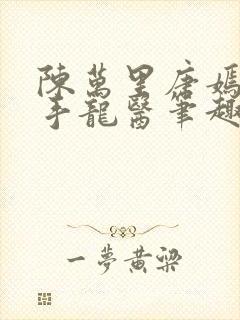 陳萬里唐嫣
手龍醫筆趣
一夢黃粱